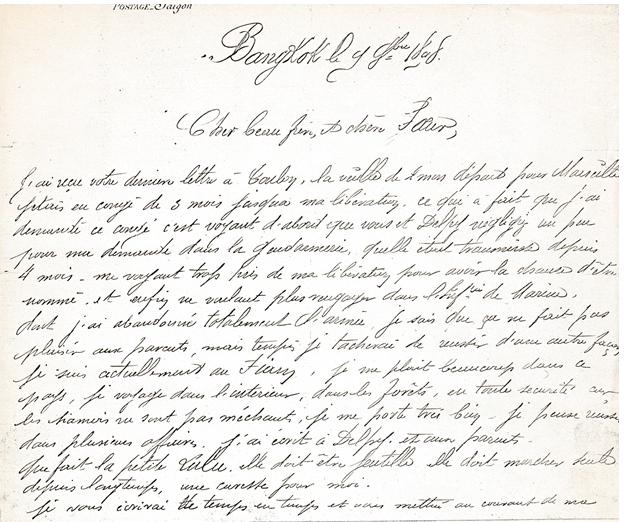 POSTAGE_Saigon
Bangkok le 9 9bre 1898.
Cher beau frère, et chère Sœur,
J'ai reçu votre dernière lettre à Toulon, la veille de mon départ pour Marseille
j'étais en congé de 3 mois jusqua ma libération, ce qui a fait que j'ai
demandé ce congé c'est voyant d'abord que vous et Delpy négligiez un peu
pour ma demande dans la Gendarmerie, quelle était transmise depuis
4 mois - me voyant trop près de ma libération pour avoir la chance d'être
nommé. et enfin ne voulant plus rengager dans l'Infrie de Marine.
dont j'ai abandonné totalement l'armée. je sais que ça ne fait pas
plaisir aux parents, mais tempis je tacherai de reussir d'une autre façon
je suis actuellement au Siam, je me plait beaucoup dans ce
pays, je voyage dans l'interieur, dans les forêts, en toute securité car
les siamois ne sont pas méchants, je me porte très bien - je pense réussir
dans plusieurs affaires. j'ai écrit à Delpy. et aux parents.
que fait la petite Lulu. elle doit être gentille elle doit marcher seule
depuis longtemps, une caresse pour moi.
je vous écrirai de temps en temps et vous mettrai au courant de ma